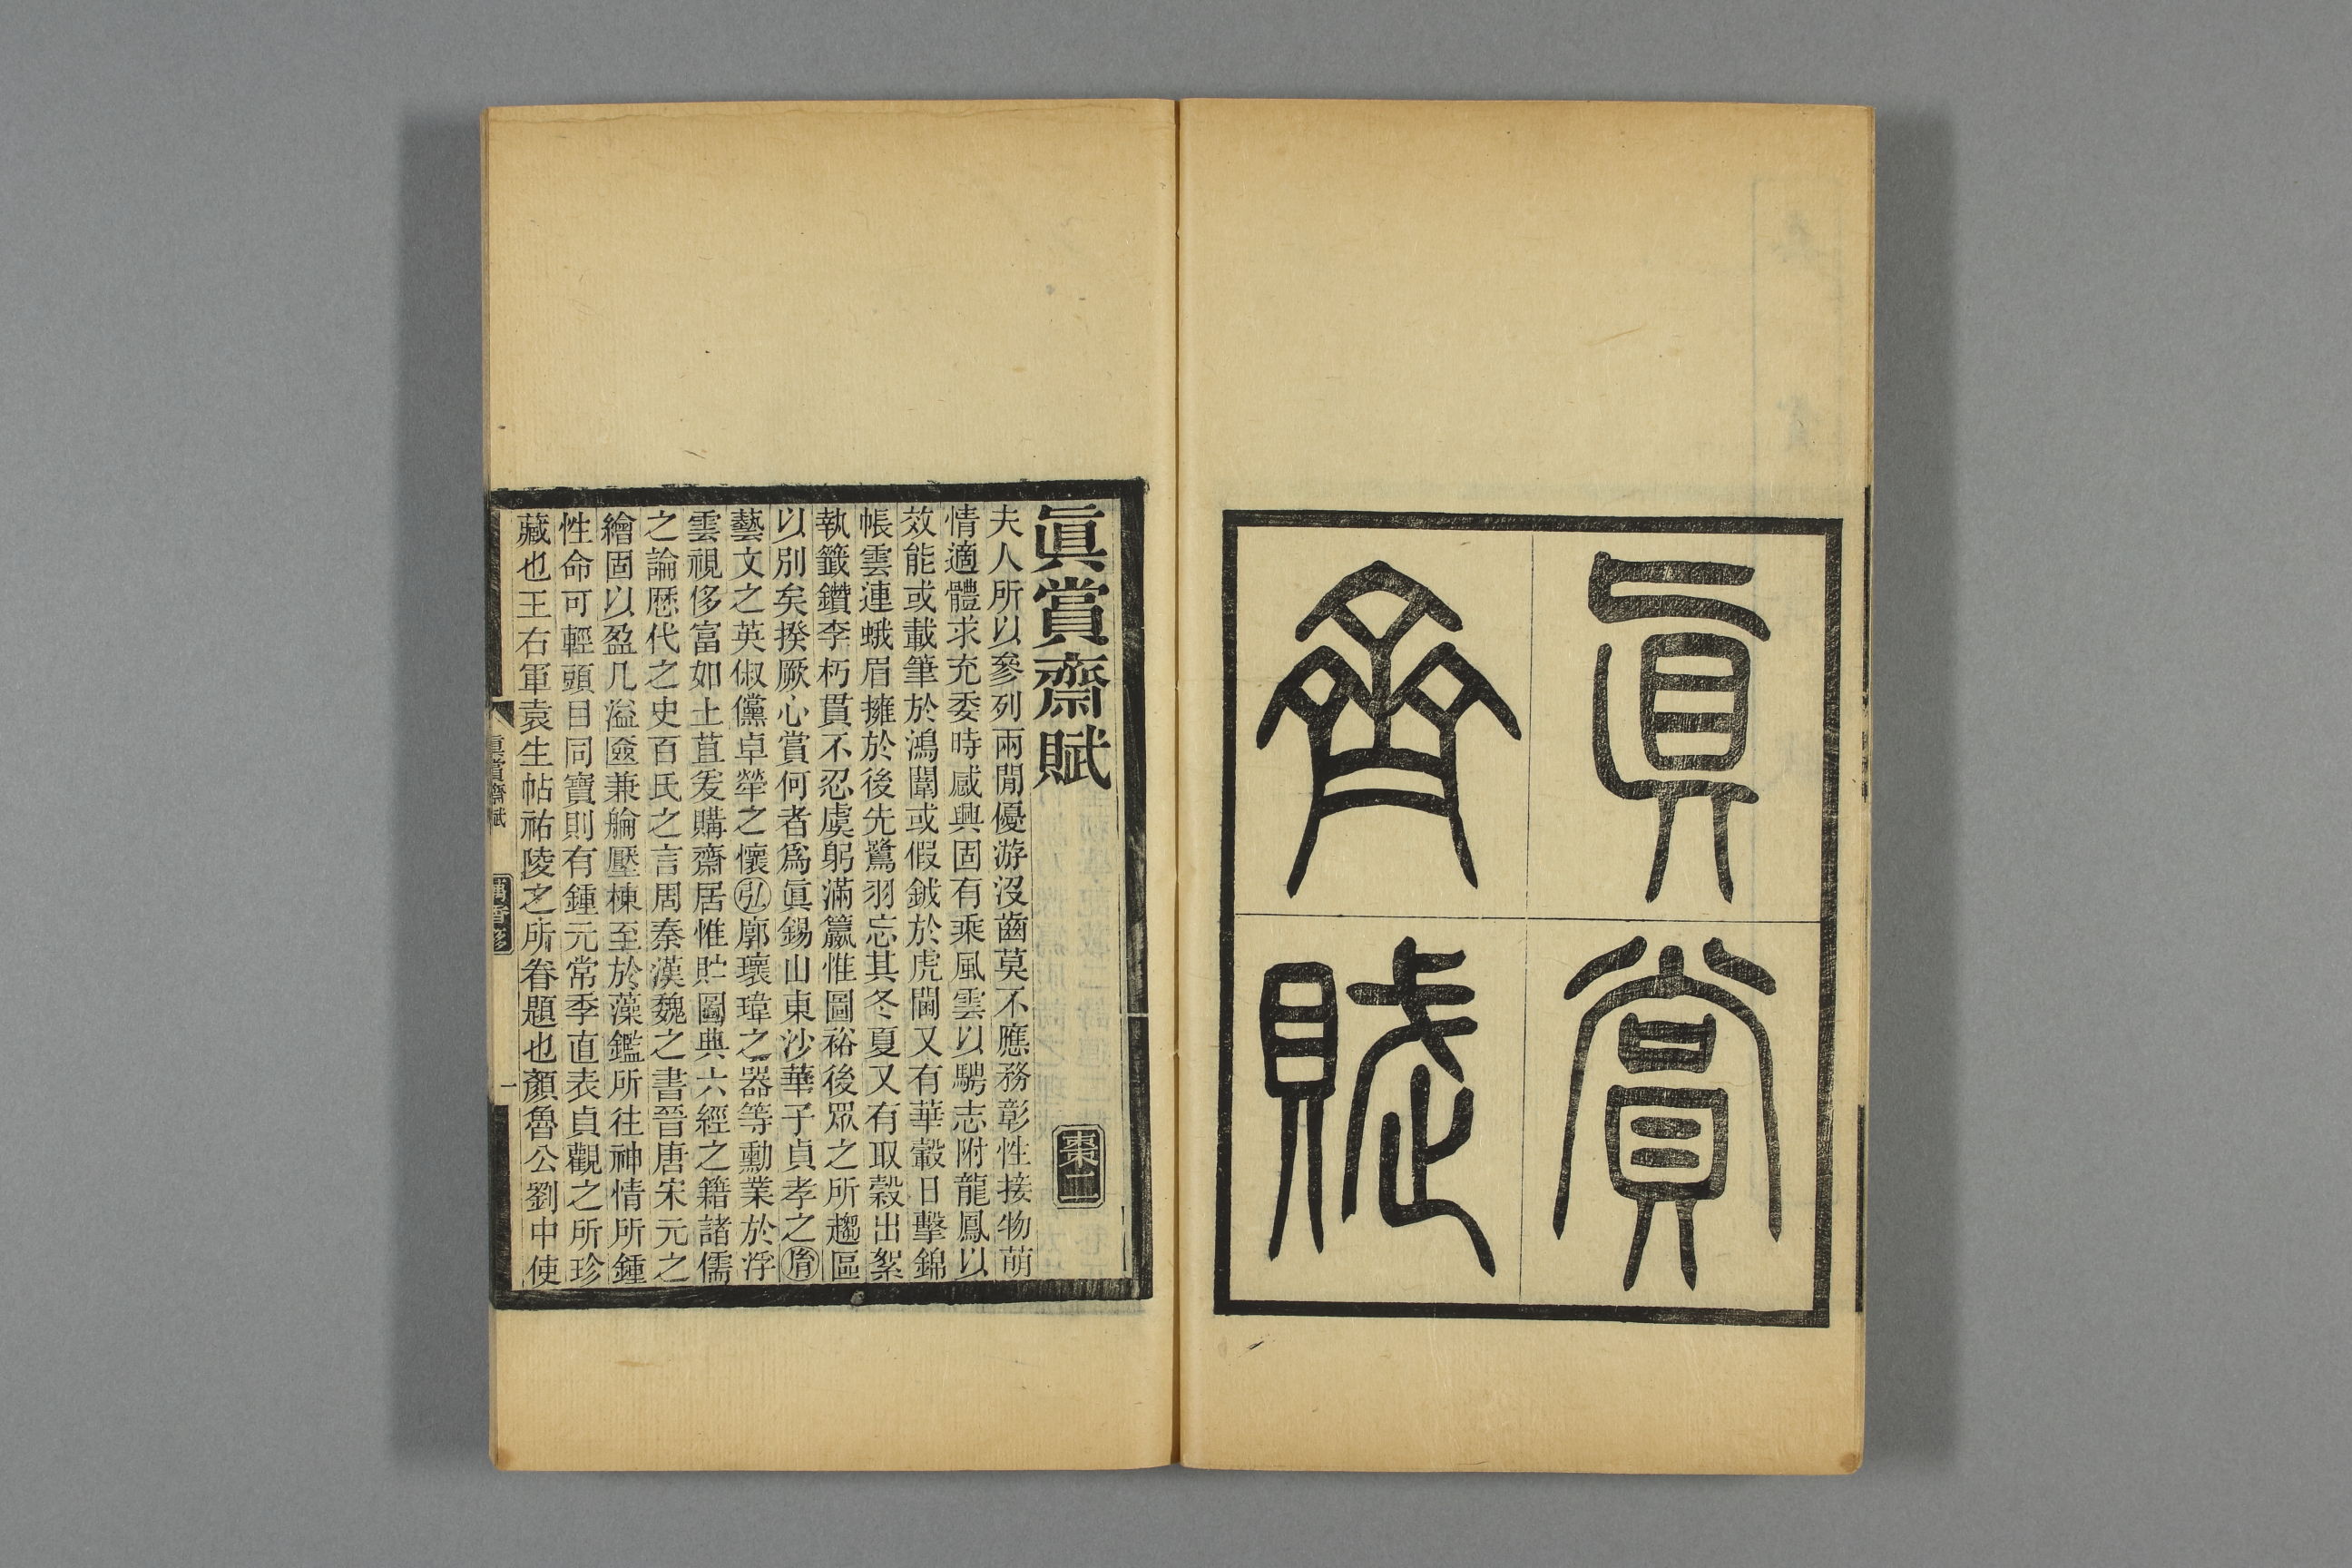 眞賞
齋賦
眞賞齋賦
棗二
夫人所以參列兩閒優游沒齒莫不應務彰性接物萌
情適體求充委時感興固有乘風雲以騁志附龍鳳以
效能或載筆於鴻闈或假鉞於虎閫又有華轂日擊錦
帳雲連蛾眉擁於後先鷺羽忘其冬夏又有取穀出絮
執籤鑽李朽貫不忍虞躬滿籯惟圖裕後眾之所趨區
以別矣揆厥心賞何者爲眞錫山東沙華子貞孝之
藝文之英俶儻卓犖之懷弘廓瓌瑋之器等勳業於浮
雲視侈富如土苴爰購齋居惟貯圖典六經之籍諸儒
之論歷代之史百氏之言周秦漢魏之書晉唐宋元之
繪固以盈几溢匳兼艫壓棟至於藻鑑所往神情所鍾
性命可輕頭目同寶則有鍾元常季直表貞觀之所珍
藏也王右軍袁生帖祐陵之所眷題也顏魯公劉中使
眞賞齋賦
一